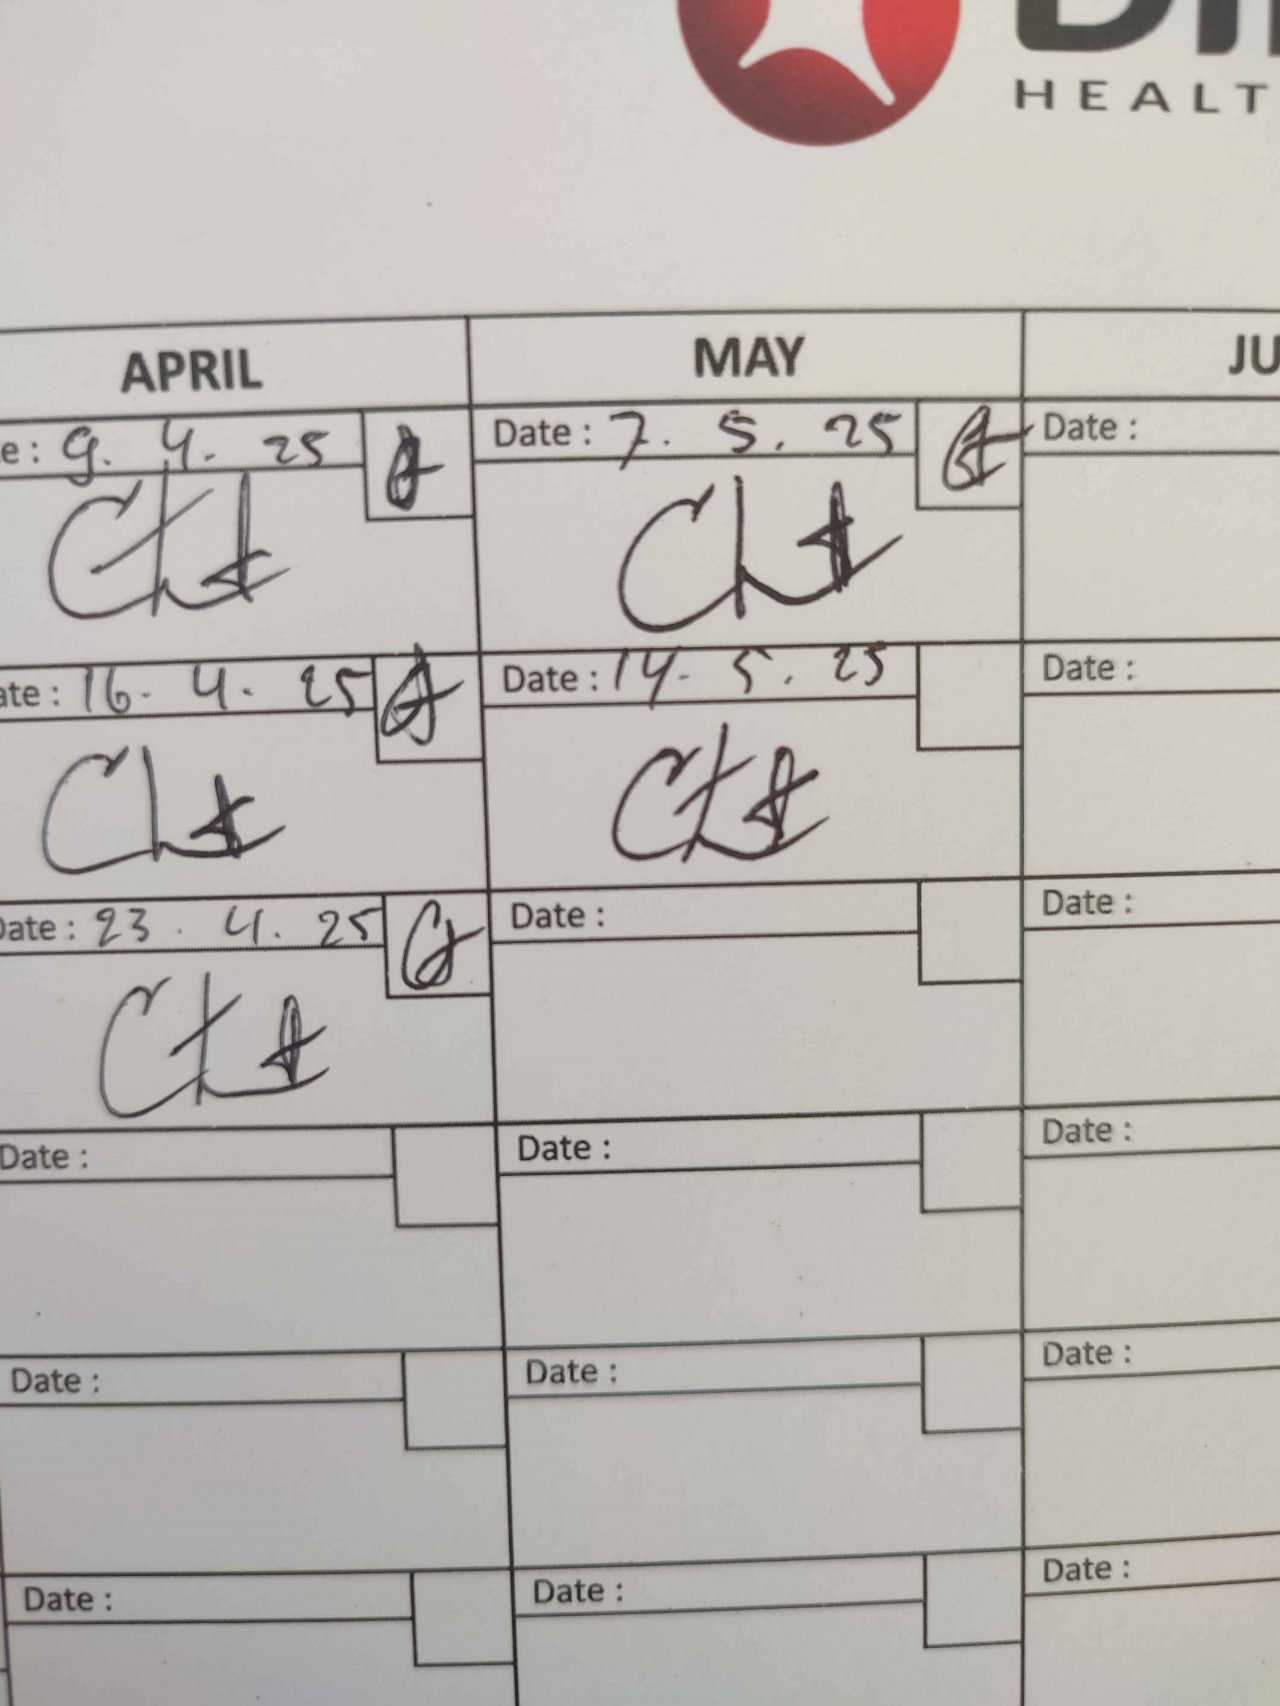 HEALT
APRIL MAY JU
e : 9. 4. 25 Date : 7. 5. 25 Date :
ate : 16. 4. 25 Date : 14. 5. 25 Date :
Date : 23. 4. 25 Date : Date :
Date : Date : Date :
Date : Date : Date :
Date : Date : Date :